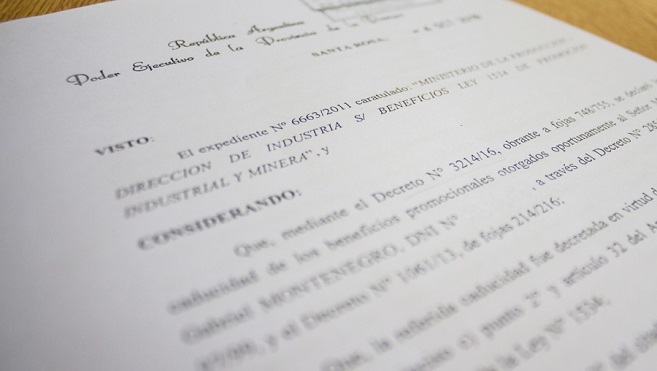 República Argentina
Poder Ejecutivo de la Provincia de La Pampa
SANTA ROSA, - 6 OCT
VISTO:
El expediente Nº 6663/2011 caratulado: "MINISTERIO DE LA PRODUCCION -
DIRECCION DE INDUSTRIA S/ BENEFICIOS LEY 1534 DE PROMOCION
INDUSTRIAL Y MINERA", y
CONSIDERANDO:
Que, mediante el Decreto Nº 3214/16, obrante a fojas 748/755, se declaró la
caducidad de los beneficios promocionales otorgados oportunamente al Señor
Gabriel MONTENEGRO, DNI Nº , a través del Decreto Nº
y el Decreto Nº 1061/13, de fojas 214/216;
Que, la referida caducidad fue decretada en virtud d
punto 2º y artículo 32 del
la Ley Nº 1534;
del